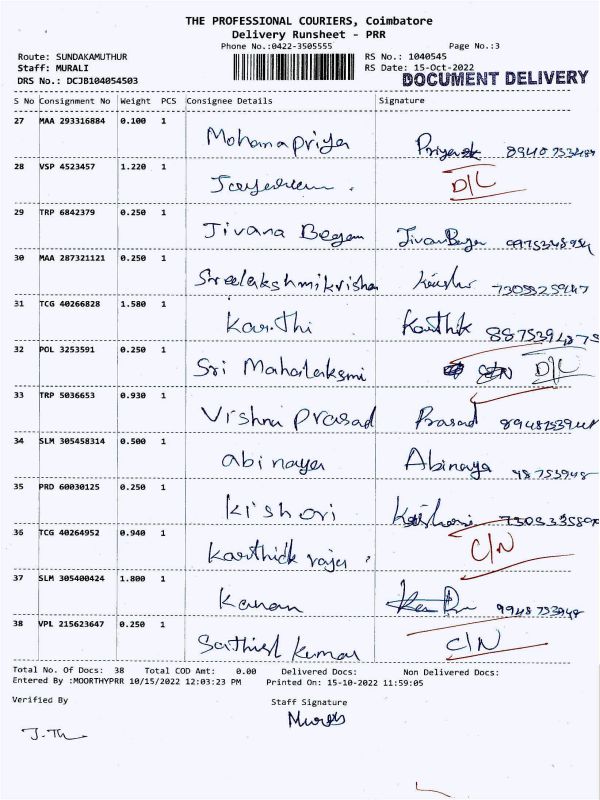 THE PROFESSIONAL COURIERS, Coimbatore
Delivery Runsheet - PRR
Phone No.:0422-3505555 Page No.:3
Route: SUNDAKAMUTHUR RS No.: 1040545
Staff: MURALI RS Date: 15-Oct-2022
DRS No.: DCJB104054503 DOCUMENT DELIVERY
S No Consignment No Weight PCS Consignee Details Signature
27 MAA 293316884 0.100 1
Mohanapriya
28 VSP 4523457 1.220 1
D/L
29 TRP 6842379 0.250 1
Jivana Begam
30 MAA 287321121 0.250 1
Sreelakshmikrisha
31 TCG 40266828 1.580 1
Karthi Karthik
32 POL 3253591 0.250 1
Sri Mahalaksmi D/L
33 TRP 5036653 0.930 1
Vishnu Prasad Prasad
34 SLM 305458314 0.500 1
abinaya Abinaya 48753948
35 PRD 60030125 0.250 1
Kishori
36 TCG 40264952 0.940 1
Karthick raja C/N
37 SLM 305400424 1.800 1
Kanan 9948753948
38 VPL 215623647 0.250 1
Sathish Kumar C/N
Total No. Of Docs: 38 Total COD Amt: 0.00 Delivered Docs: Non Delivered Docs:
Entered By :MOORTHYPRR 10/15/2022 12:03:23 PM Printed On: 15-10-2022 11:59:05
Verified By Staff Signature